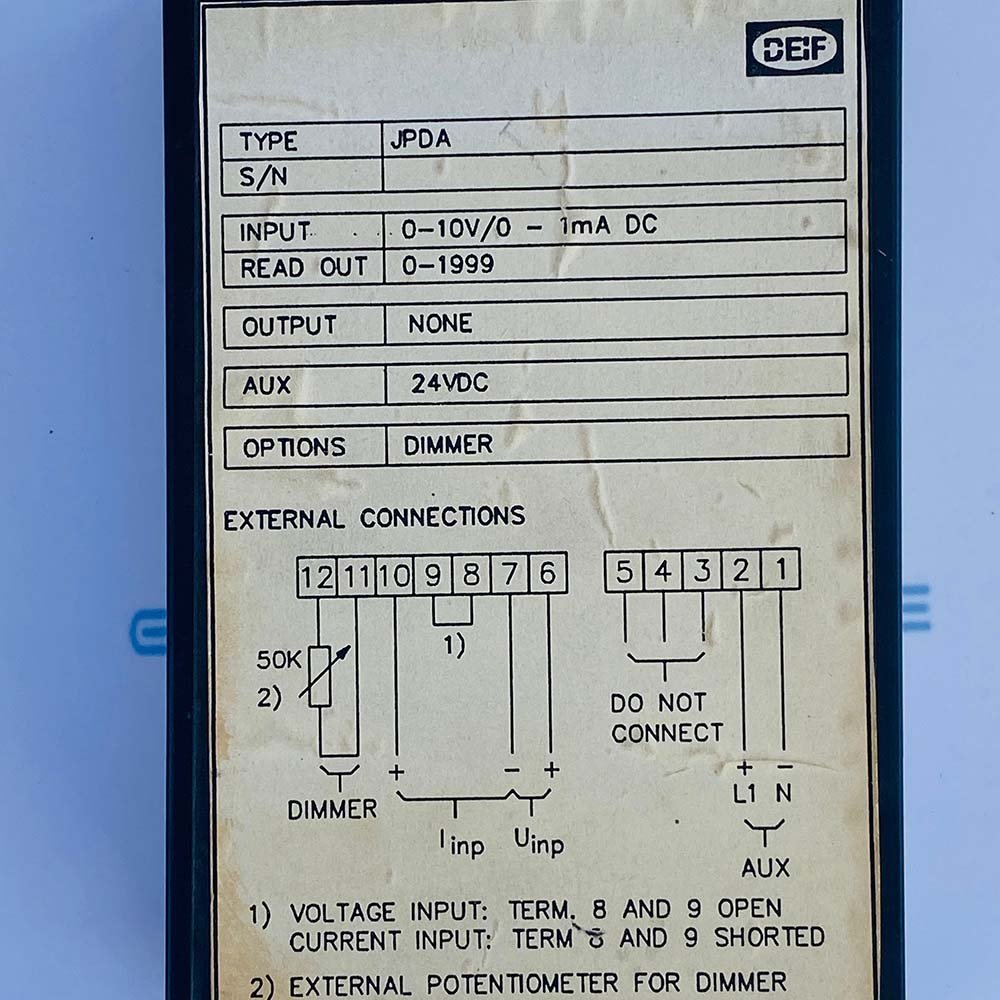 DEIF
TYPE JPDA
S/N
INPUT 0-10V/0 - 1mA DC
READ OUT 0-1999
OUTPUT NONE
AUX 24VDC
OPTIONS DIMMER
EXTERNAL CONNECTIONS
12 11 10 9 8 7 6 5 4 3 2 1
1)
50K
2)
DO NOT
CONNECT
+ - + + -
L1 N
DIMMER
I inp U inp
AUX
1) VOLTAGE INPUT: TERM. 8 AND 9 OPEN
CURRENT INPUT: TERM 8 AND 9 SHORTED
2) EXTERNAL POTENTIOMETER FOR DIMMER